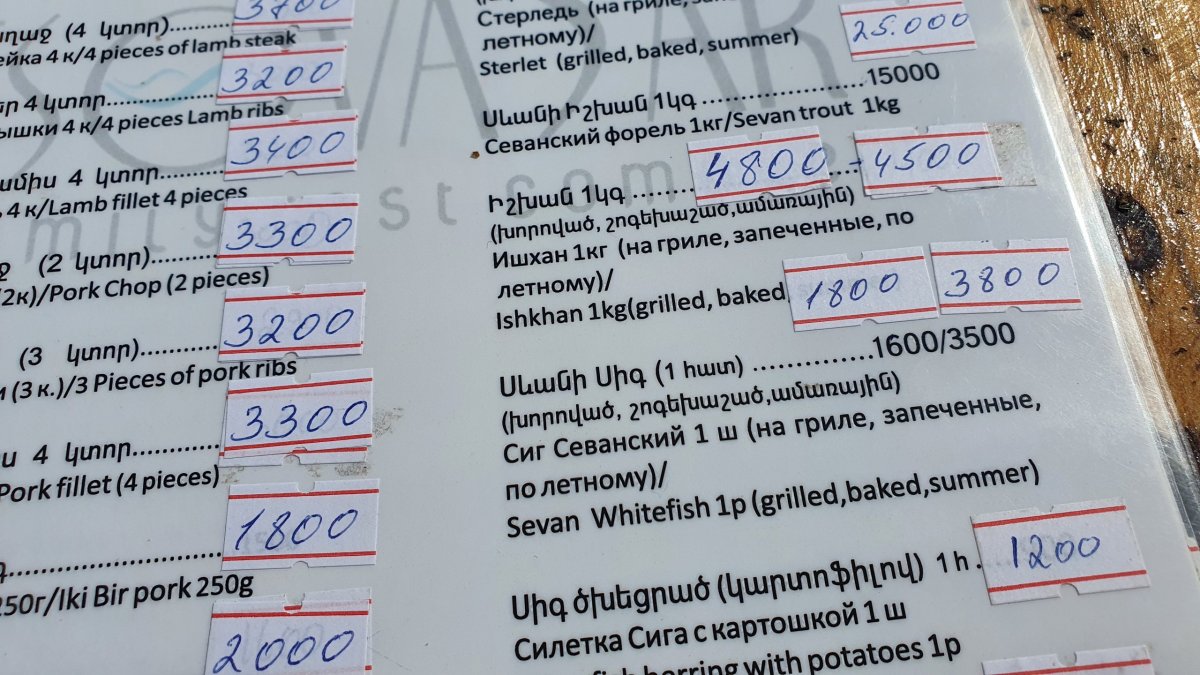 3700
ղաջ (4 կտոր)
ейка 4 к/4 pieces of lamb steak
3200
եր 4 կտոր
ышки 4 к/4 pieces Lamb ribs
3400
ամիս 4 կտոր
4 к/Lamb fillet 4 pieces
3300
(2 կտոր)
2к)/Pork Chop (2 pieces)
3200
(3 կտոր)
(3 к.)/3 Pieces of pork ribs
3300
ս 4 կտոր
Pork fillet (4 pieces)
1800
250г/Iki Bir pork 250g
2000
Стерледь (на гриле,
летному)/
25.000
Sterlet (grilled, baked, summer)
Սևանի Իշխան 1կգ ..................... 15000
Севанский форель 1кг/Sevan trout 1kg
Իշխան 1կգ ....... 4800 - 4500
(խորոված, շոգեխաշած,ամառային)
Ишхан 1кг (на гриле, запеченные, по
летному)/
Ishkhan 1kg(grilled, baked, 1800 3800
Սևանի Սիգ (1 հատ) .............1600/3500
(խորոված, շոգեխաշած,ամառային)
Сиг Севанский 1 ш (на гриле, запеченные,
по летному)/
Sevan Whitefish 1p (grilled,baked,summer)
Սիգ ծխեցրած (կարտոֆիլով) 1 հ . 1200
Силетка Сига с картошкой 1 ш
herring with potatoes 1p